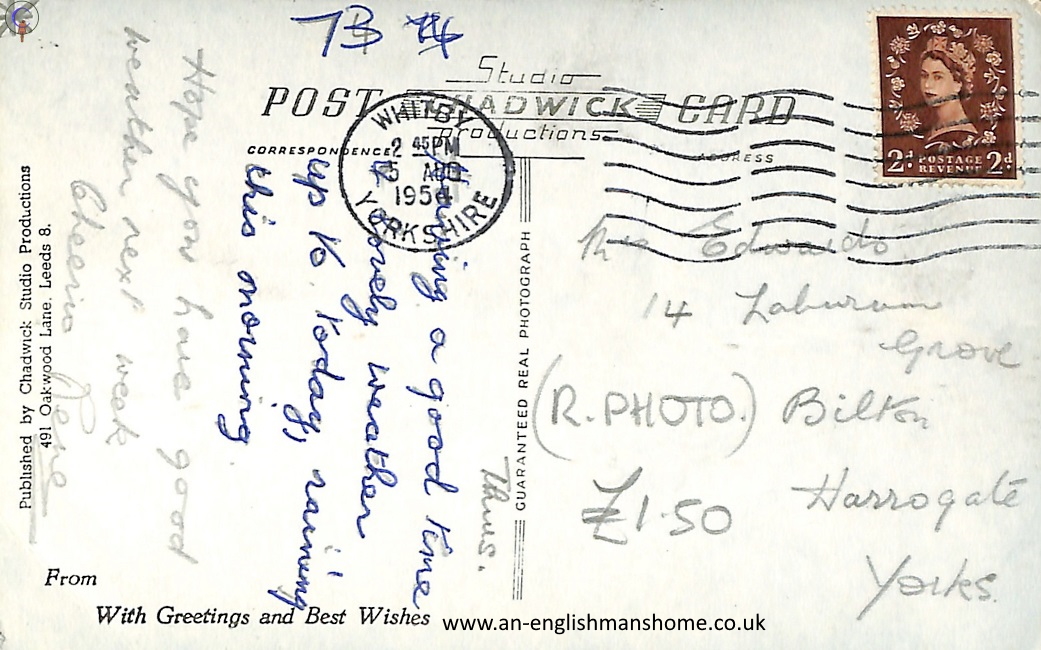 Studio
POST CHADWICK CARD
Productions
CORRESPONDENCE
ADDRESS
WHITBY
2 45PM
5 AUG
1954
YORKSHIRE
2D POSTAGE 2D
REVENUE
Thurs.
Having a good time
Lovely weather
up to today, raining
this morning
Hope you have good
weather next week
Cheerio
Edwards
14 Laburnum
Grove
(R. PHOTO.) Bilton
£1.50
Harrogate
Yorks.
GUARANTEED REAL PHOTOGRAPH
Published by Chadwick Studio Productions
491 Oakwood Lane. Leeds 8.
From
With Greetings and Best Wishes
www.an-englishmanshome.co.uk